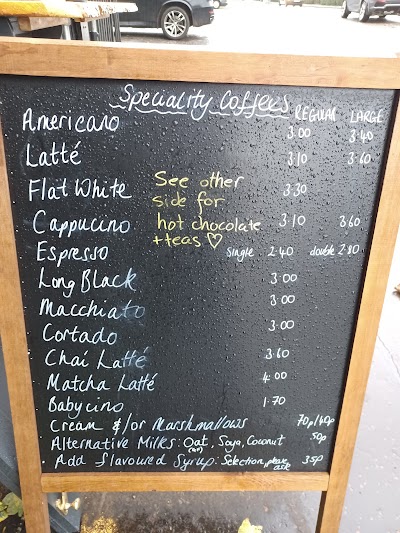 Speciality Coffees
REGULAR LARGE
Americano 3.00 3.40
Latté 3.10 3.60
Flat White 3.30
See other
side for
hot chocolate
+teas ♡
Cappucino 3.10 3.60
Espresso single 2.40 double 2.80
Long Black 3.00
Macchiato 3.00
Cortado 3.00
Chai Latté 3.60
Matcha Latté 4.00
Babycino 1.70
Cream &/or Marshmallows 70p/40p
Alternative Milks: Oat, Soya, Coconut 50p
Add flavoured Syrup: Selection, please ask 35p